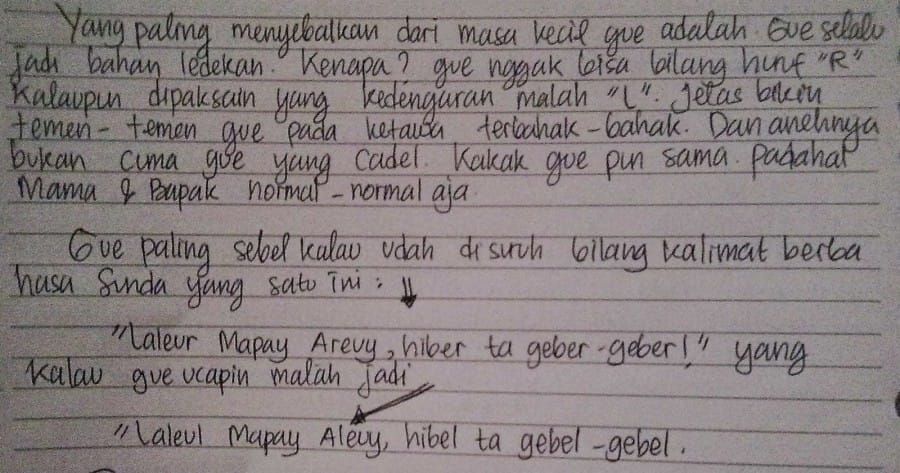 Yang paling menyebalkan dari masa kecil gue adalah. Gue selalu
jadi bahan ledekan. Kenapa? gue nggak bisa bilang huruf "R"
Kalaupun dipaksain yang kedengaran malah "L". Jelas bikin
temen-temen gue pada ketawa terbahak-bahak. Dan anehnya
bukan cuma gue yang cadel. Kakak gue pun sama. padahal
Mama & Bapak normal-normal aja.
Gue paling sebel kalau udah di suruh bilang kalimat berba
hasa Sunda yang satu ini :
"Laleur Mapay Areuy, hiber ta geber-geber!" yang
Kalau gue ucapin malah jadi
"Laleul Mapay Aleuy, hibel ta gebel-gebel.